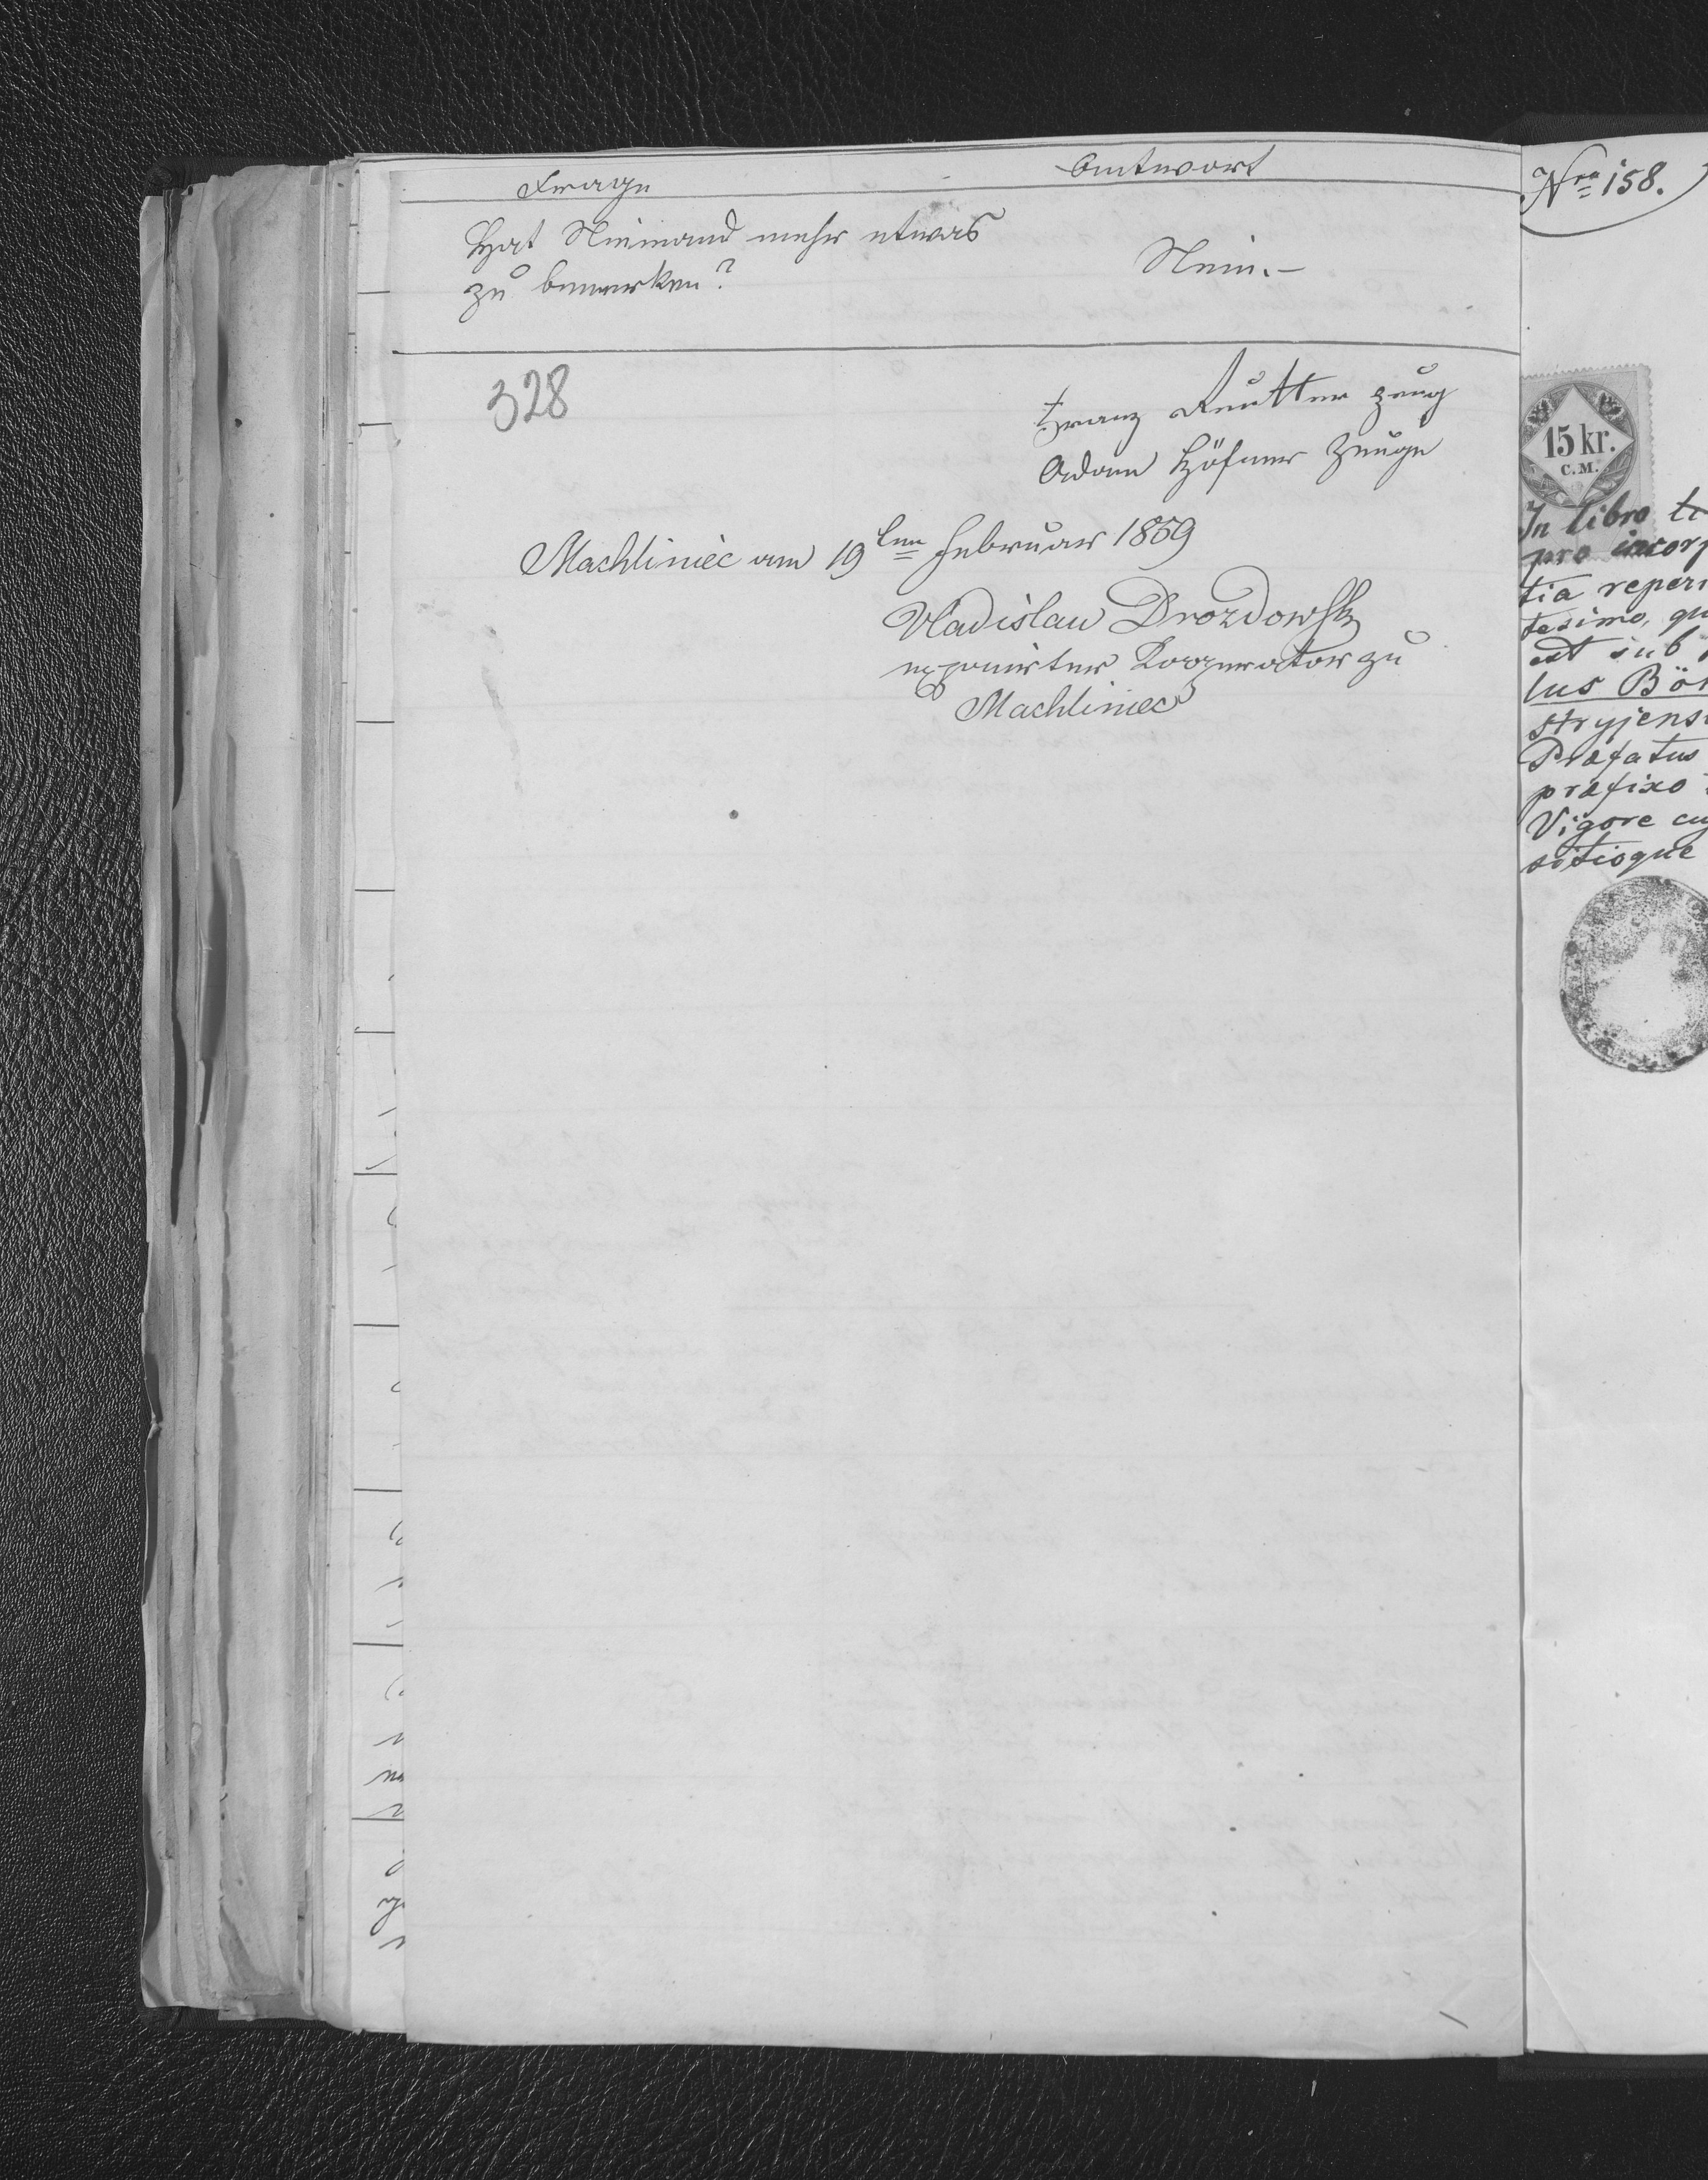 Frage
Antwort
Hat Niemand mehr etwas
zu bemerken?
Nein.–
328
Franz Reutter Zeug
Adam Höfner Zeuge
Machliniec am 19ten Februar 1859
Vladislau Drozdowski
exponirter Kooperator zu
Machliniec
Nro 158.
15 kr.
C.M.
In libro
pro incorp
tia reperi
tesimo, qu
est sub
lus Bör
Stryjens
Præfatus
præfixo
Vigore cu
sitisque